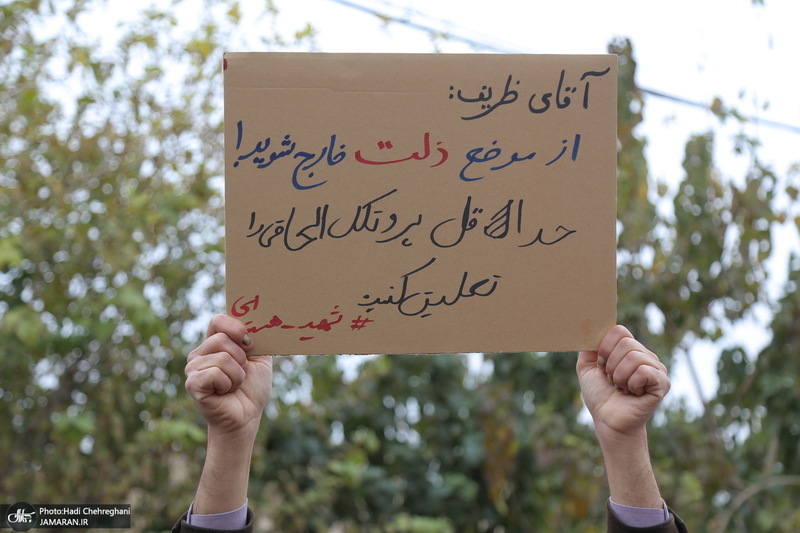 آقای ظریف:
از موضع ذلت خارج شوید!
حداقل پروتکل الحاقی را
تعلیق کنید
#شهید_هسته‌ای
Photo:Hadi Chehreghani
JAMARAN.IR